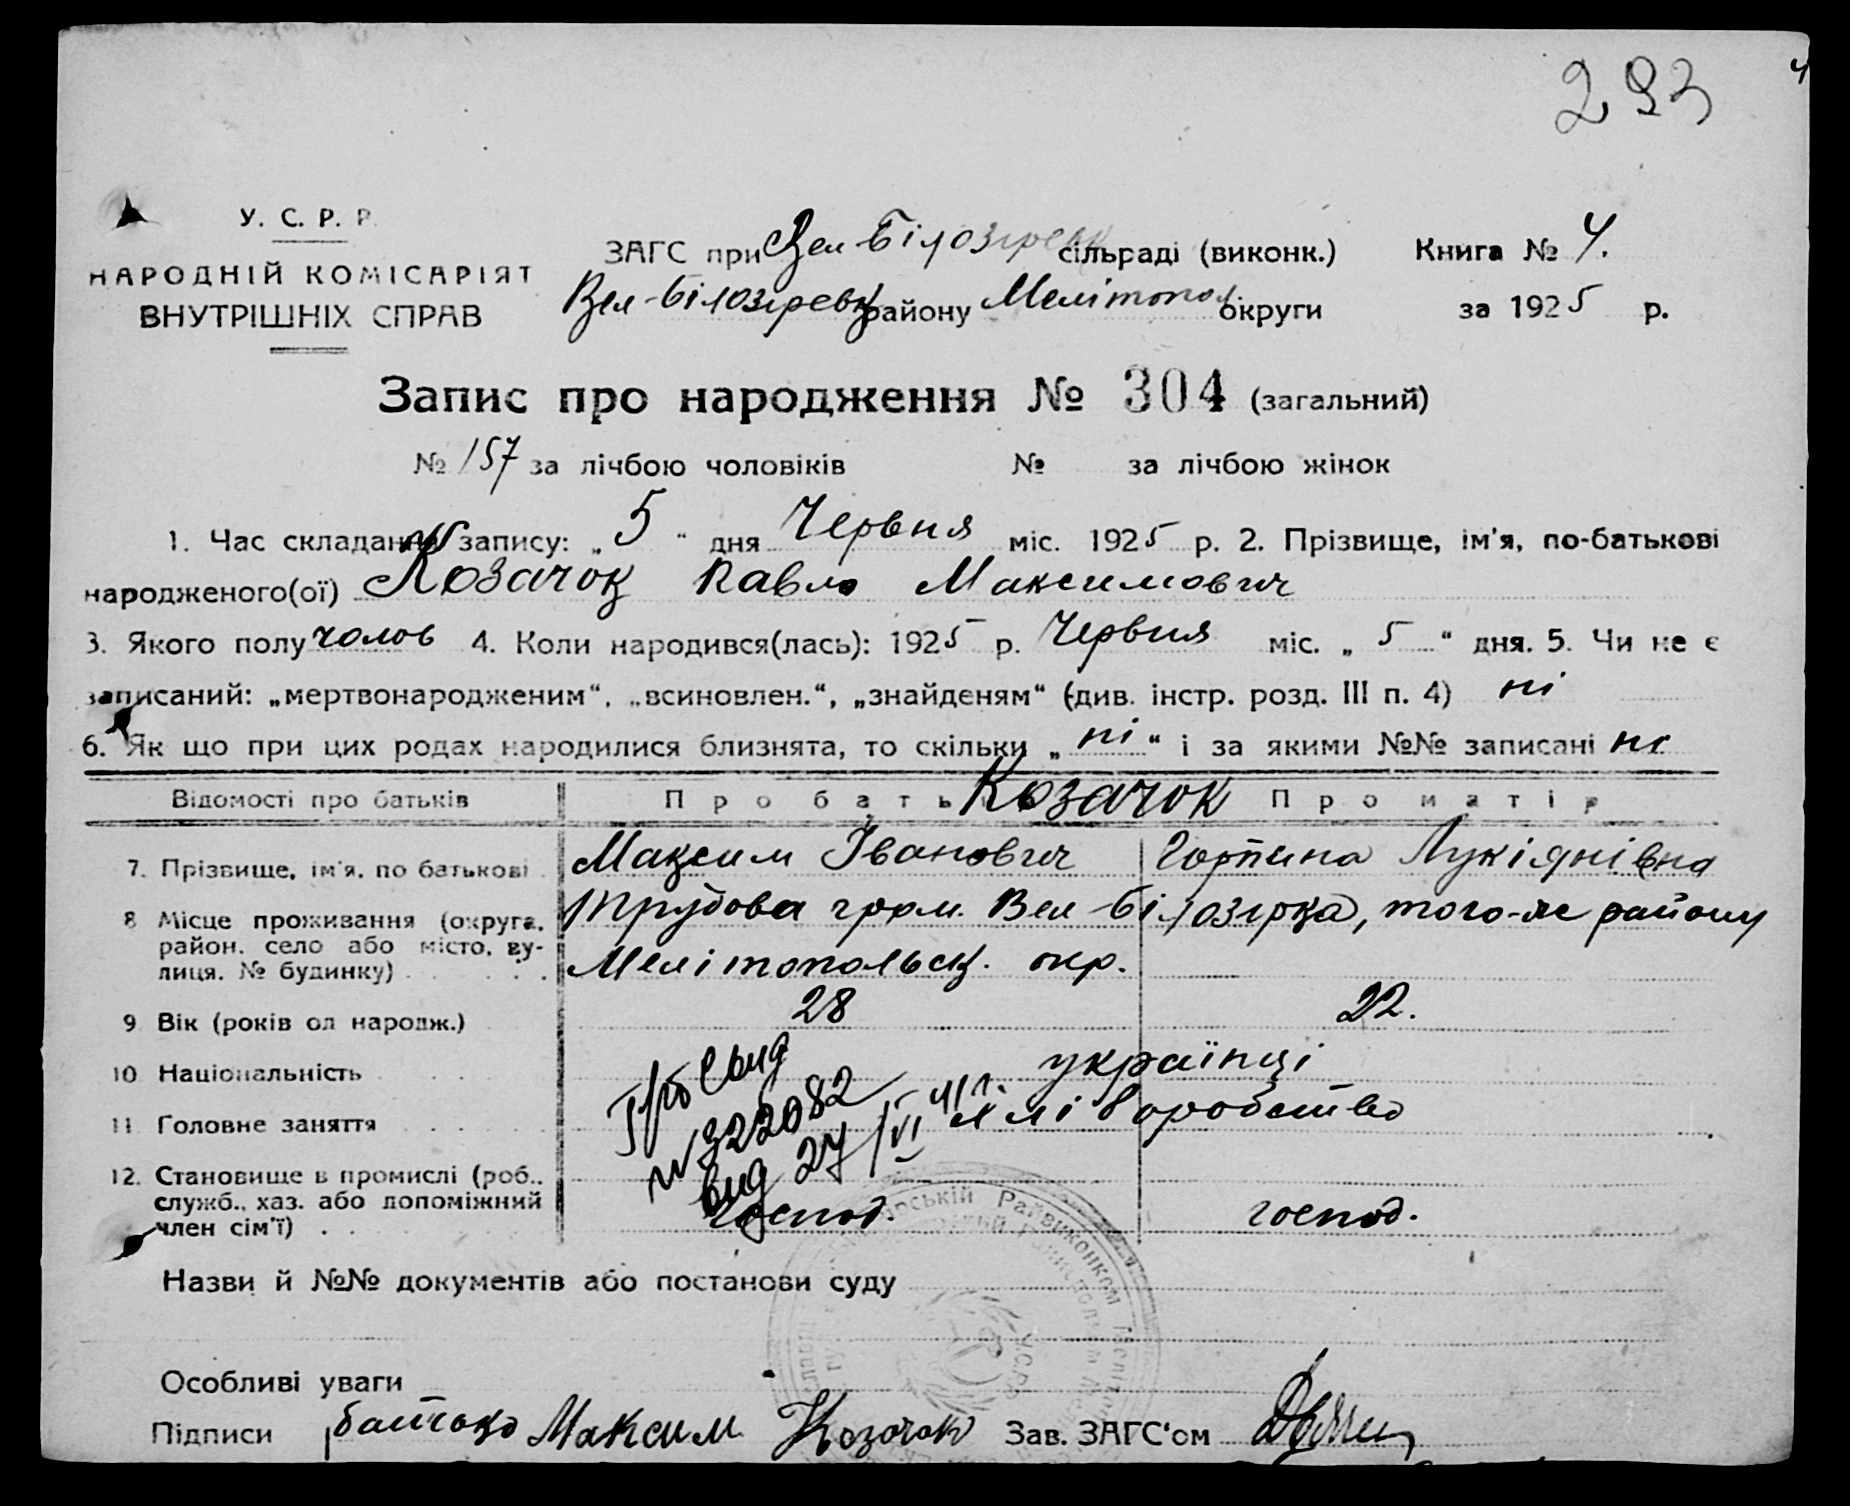 293
4
У. С. Р. Р.
НАРОДНІЙ КОМІСАРІЯТ
ВНУТРІШНІХ СПРАВ
ЗАГС при Вел-Білозірськ сільраді (виконк.) Книга № 4.
Вел-Білозірськ району Мелітопол. округи за 1925 р.
Запис про народження № 304 (загальний)
№ 157 за лічбою чоловіків № за лічбою жінок
1. Час складання запису: „5“ дня Червня міс. 1925 р. 2. Прізвище, ім'я, по-батькові
народженого(ої) Козачок Павло Максимович
3. Якого полу чолов 4. Коли народився(лась): 1925 р. Червня міс. „5“ дня. 5. Чи не є
записаний: „мертвонародженим“, „всиновлен.“, „знайденям“ (див. інстр. розд. III п. 4) ні
6. Як що при цих родах народилися близнята, то скільки „ні“ і за якими №№ записані ні
Відомості про батьків Про батька Козачок Про матір
7. Прізвище, ім'я, по батькові Максим Іванович Горпина Лукіянівна
8 Місце проживання (округа, Трудова гром. Вел-Білозірка, того-же району
район, село або місто, ву-
лиця, № будинку) Мелітопольськ. окр.
9 Вік (років од народж.) 28 22.
10 Національність українці
11 Головне заняття хліборобство
№ 322082
вид 27/VI 41 г.
12. Становище в промислі (роб.,
служб., хаз. або допоміжний господ. господ.
член сім'ї)
Назви й №№ документів або постанови суду
Особливі уваги
Підписи батько Максим Козачок Зав. ЗАГС'ом